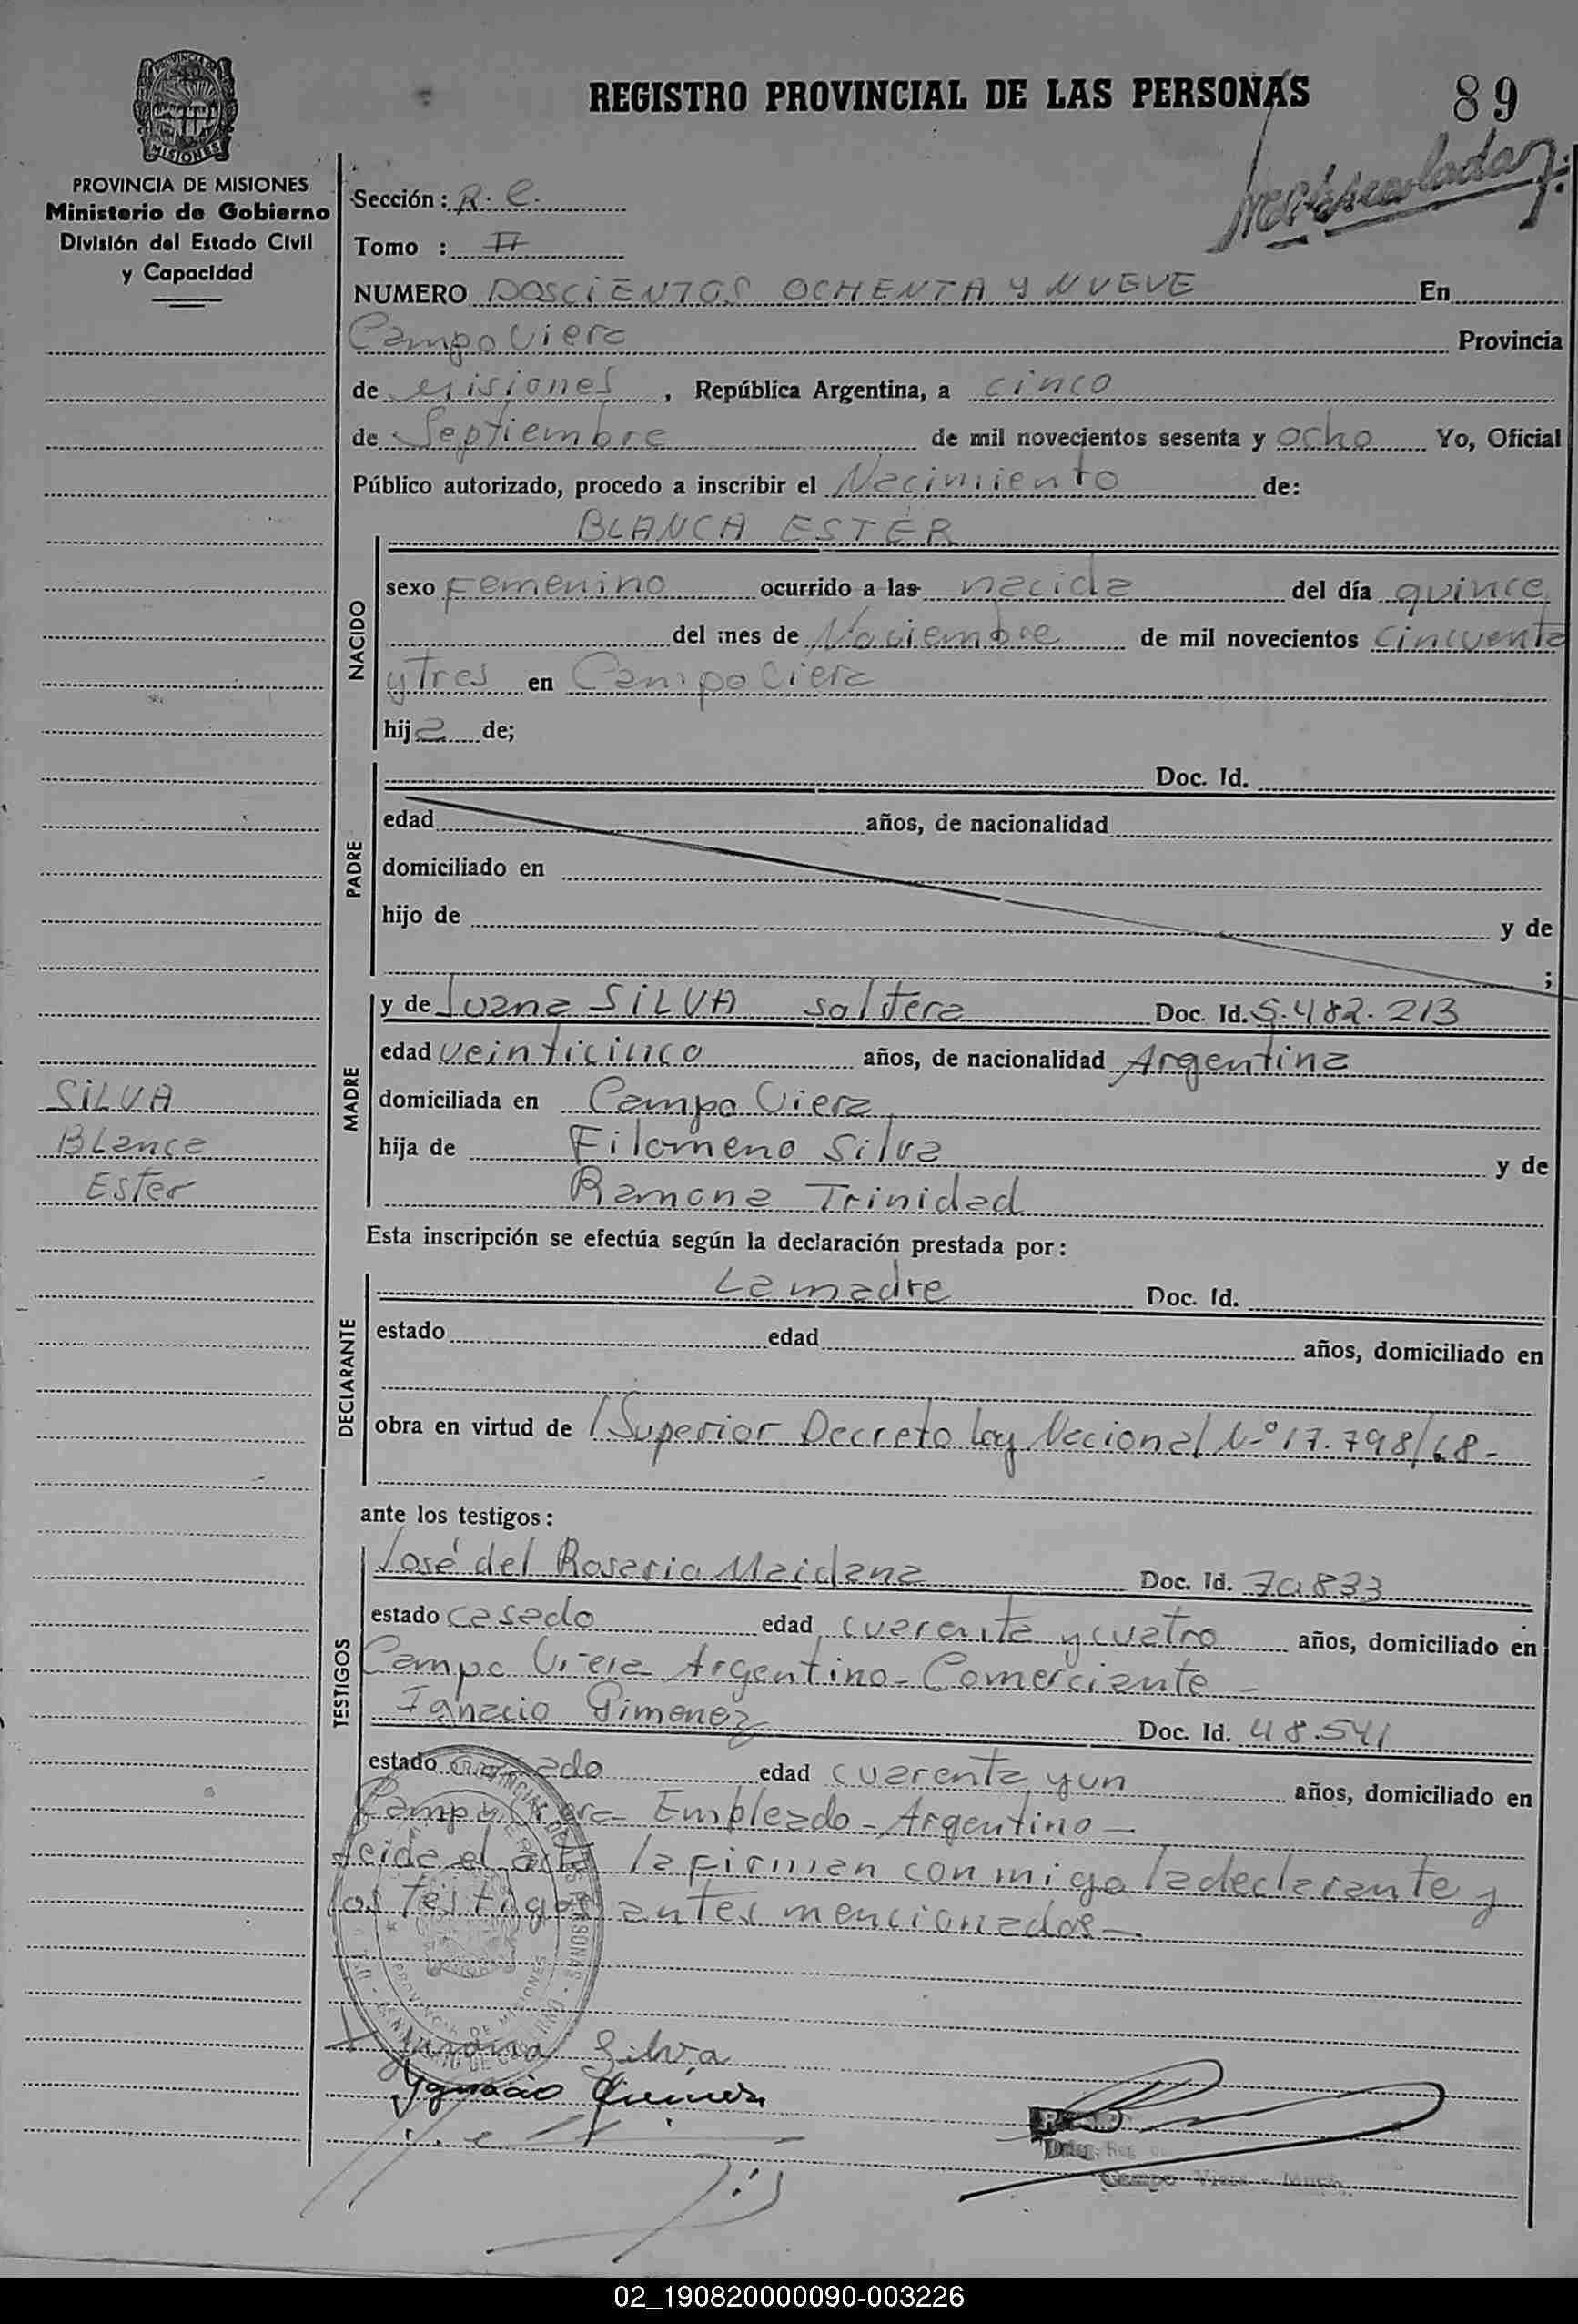 REGISTRO PROVINCIAL DE LAS PERSONAS
89
MISIONES
PROVINCIA DE MISIONES
Ministerio de Gobierno
División del Estado Civil
y Capacidad
Sección: R. C.
Tomo : II
NUMERO DOSCIENTOS OCHENTA Y NUEVE En
Campo Viera Provincia
de Misiones, República Argentina, a cinco
de Septiembre de mil novecientos sesenta y ocho Yo, Oficial
Público autorizado, procedo a inscribir el Nacimiento de:
BLANCA ESTER
NACIDO
sexo Femenino ocurrido a las nacida del día quince
del mes de Noviembre de mil novecientos cincuenta
y Tres en Campo Viera
hija de;
PADRE
Doc. Id.
edad años, de nacionalidad
domiciliado en
hijo de y de
;
MADRE
y de Juana SILVA soltera Doc. Id. 5.482.213
edad veinticinco años, de nacionalidad Argentina
domiciliada en Campo Viera
hija de Filomeno Silva y de
Ramona Trinidad
SILVA
Blanca
Ester
Esta inscripción se efectúa según la declaración prestada por:
DECLARANTE
La madre Doc. Id.
estado edad años, domiciliado en
obra en virtud de Superior Decreto Ley Nacional N-º 17.798/68-
ante los testigos:
TESTIGOS
José del Rosario Maidana Doc. Id. 70833
estado casado edad cuarenta y cuatro años, domiciliado en
Campo Viera Argentino-Comerciante-
Ignacio Gimenez Doc. Id. 48.541
estado casado edad cuarenta y un años, domiciliado en
Campo Viera- Empleado-Argentino-
leida el acta la firman conmigo la declarante y
los Testigos antes mencionados-
Silva
Ygnacio
Campo Viera
02_190820000090-003226